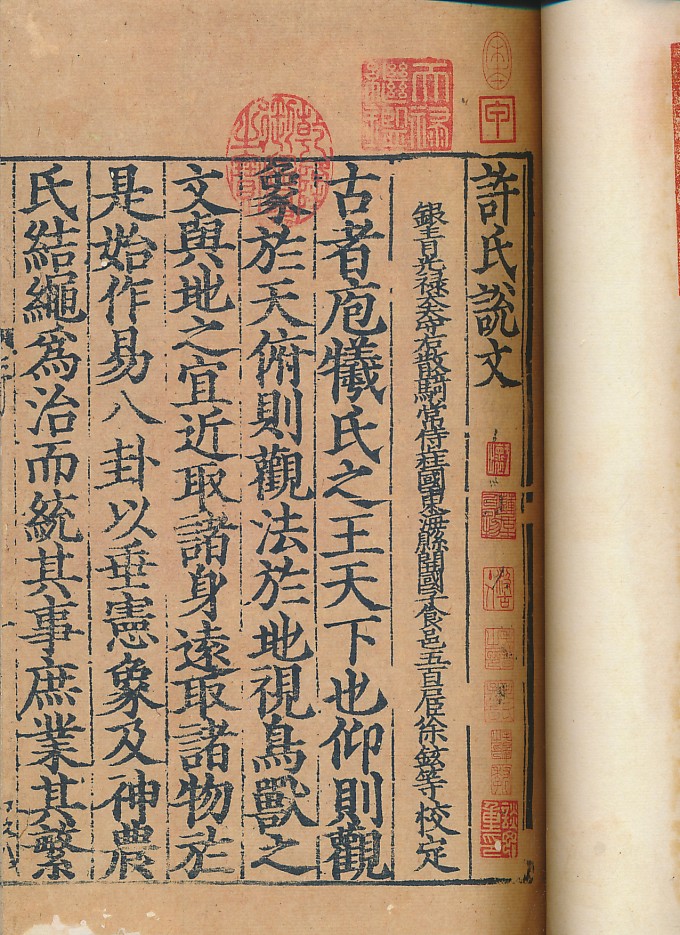 宋本
甲
天禄繼鑑
乾隆御覽之寶
許氏說文
銀青光禄大夫守右散騎常侍上柱國東海縣開國子食邑五百户臣徐鉉等校定
古者庖犧氏之王天下也仰則觀
象於天俯則觀法於地視鳥獸之
文與地之宜近取諸身遠取諸物於
是始作易八卦以垂憲象及神農
氏結繩爲治而統其事庶業其繁